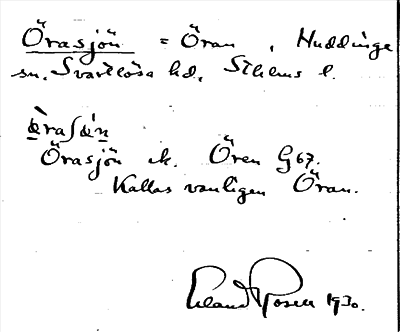 Örasjön = Öran, Huddinge
sn. Svartlösa hd, Sthlms l.
œ̀raʃœ́n
Örasjön ek. Ören G67.
Kallas vanligen Öran.
Erland Rosell 1930.